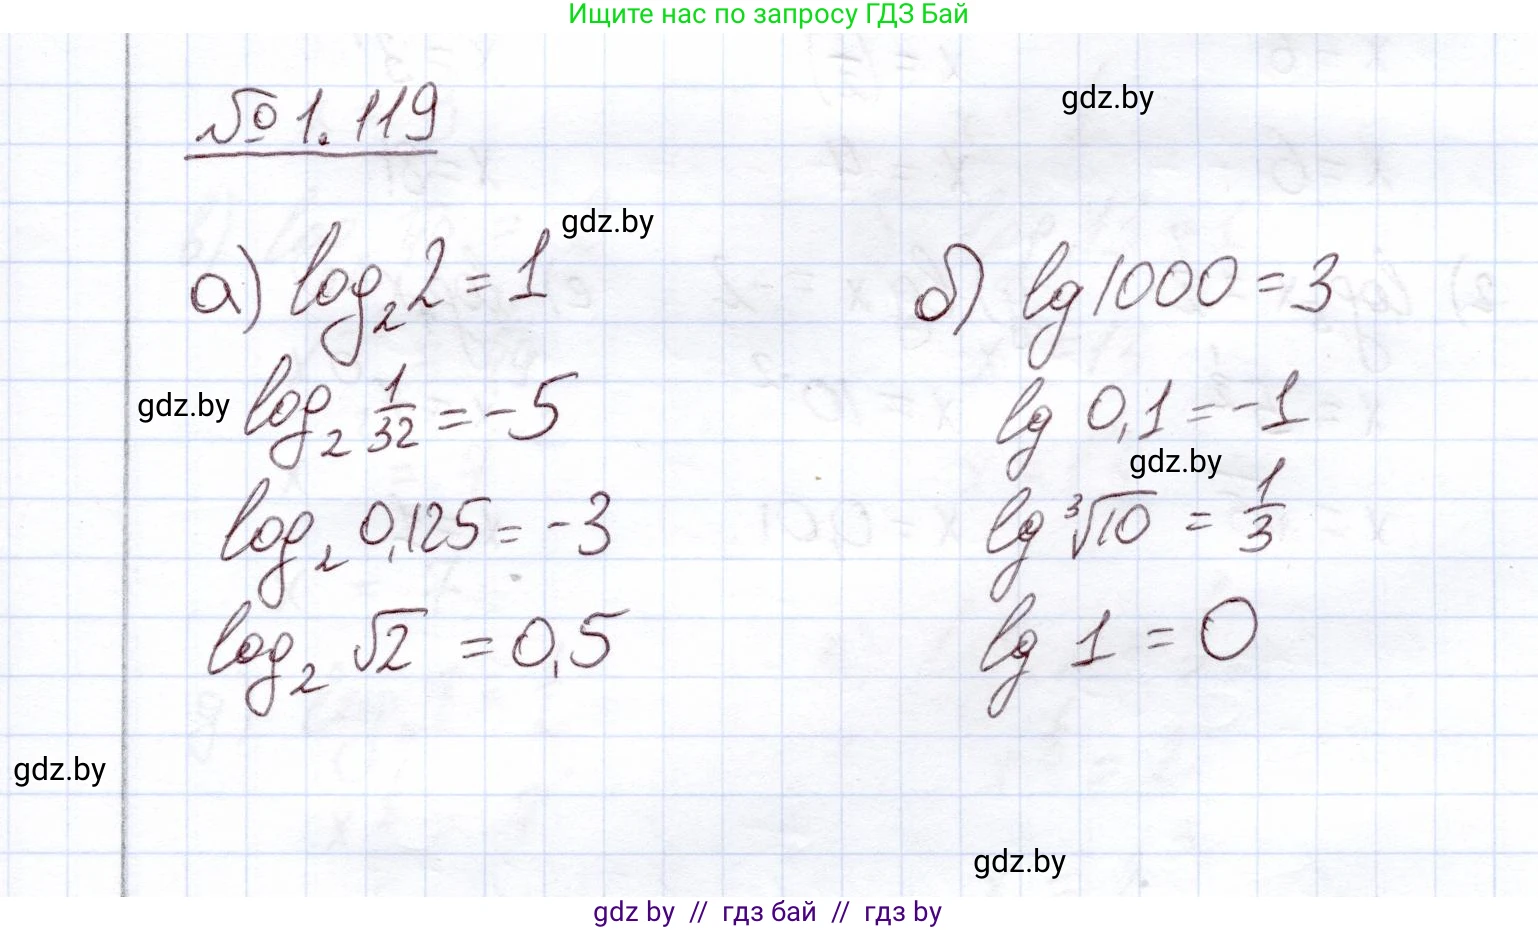 Ищите нас по запросу ГДЗ Бай
gdz.by
№ 1.119
gdz.by
а) log₂ 2 = 1
log₂ 1/32 = -5
gdz.by
log₂ 0,125 = -3
log₂ √2 = 0,5
б) lg 1000 = 3
lg 0,1 = -1
gdz.by
lg ³√10 = 1/3
lg 1 = 0
gdz.by
gdz.by
gdz by // гдз бай // гдз by